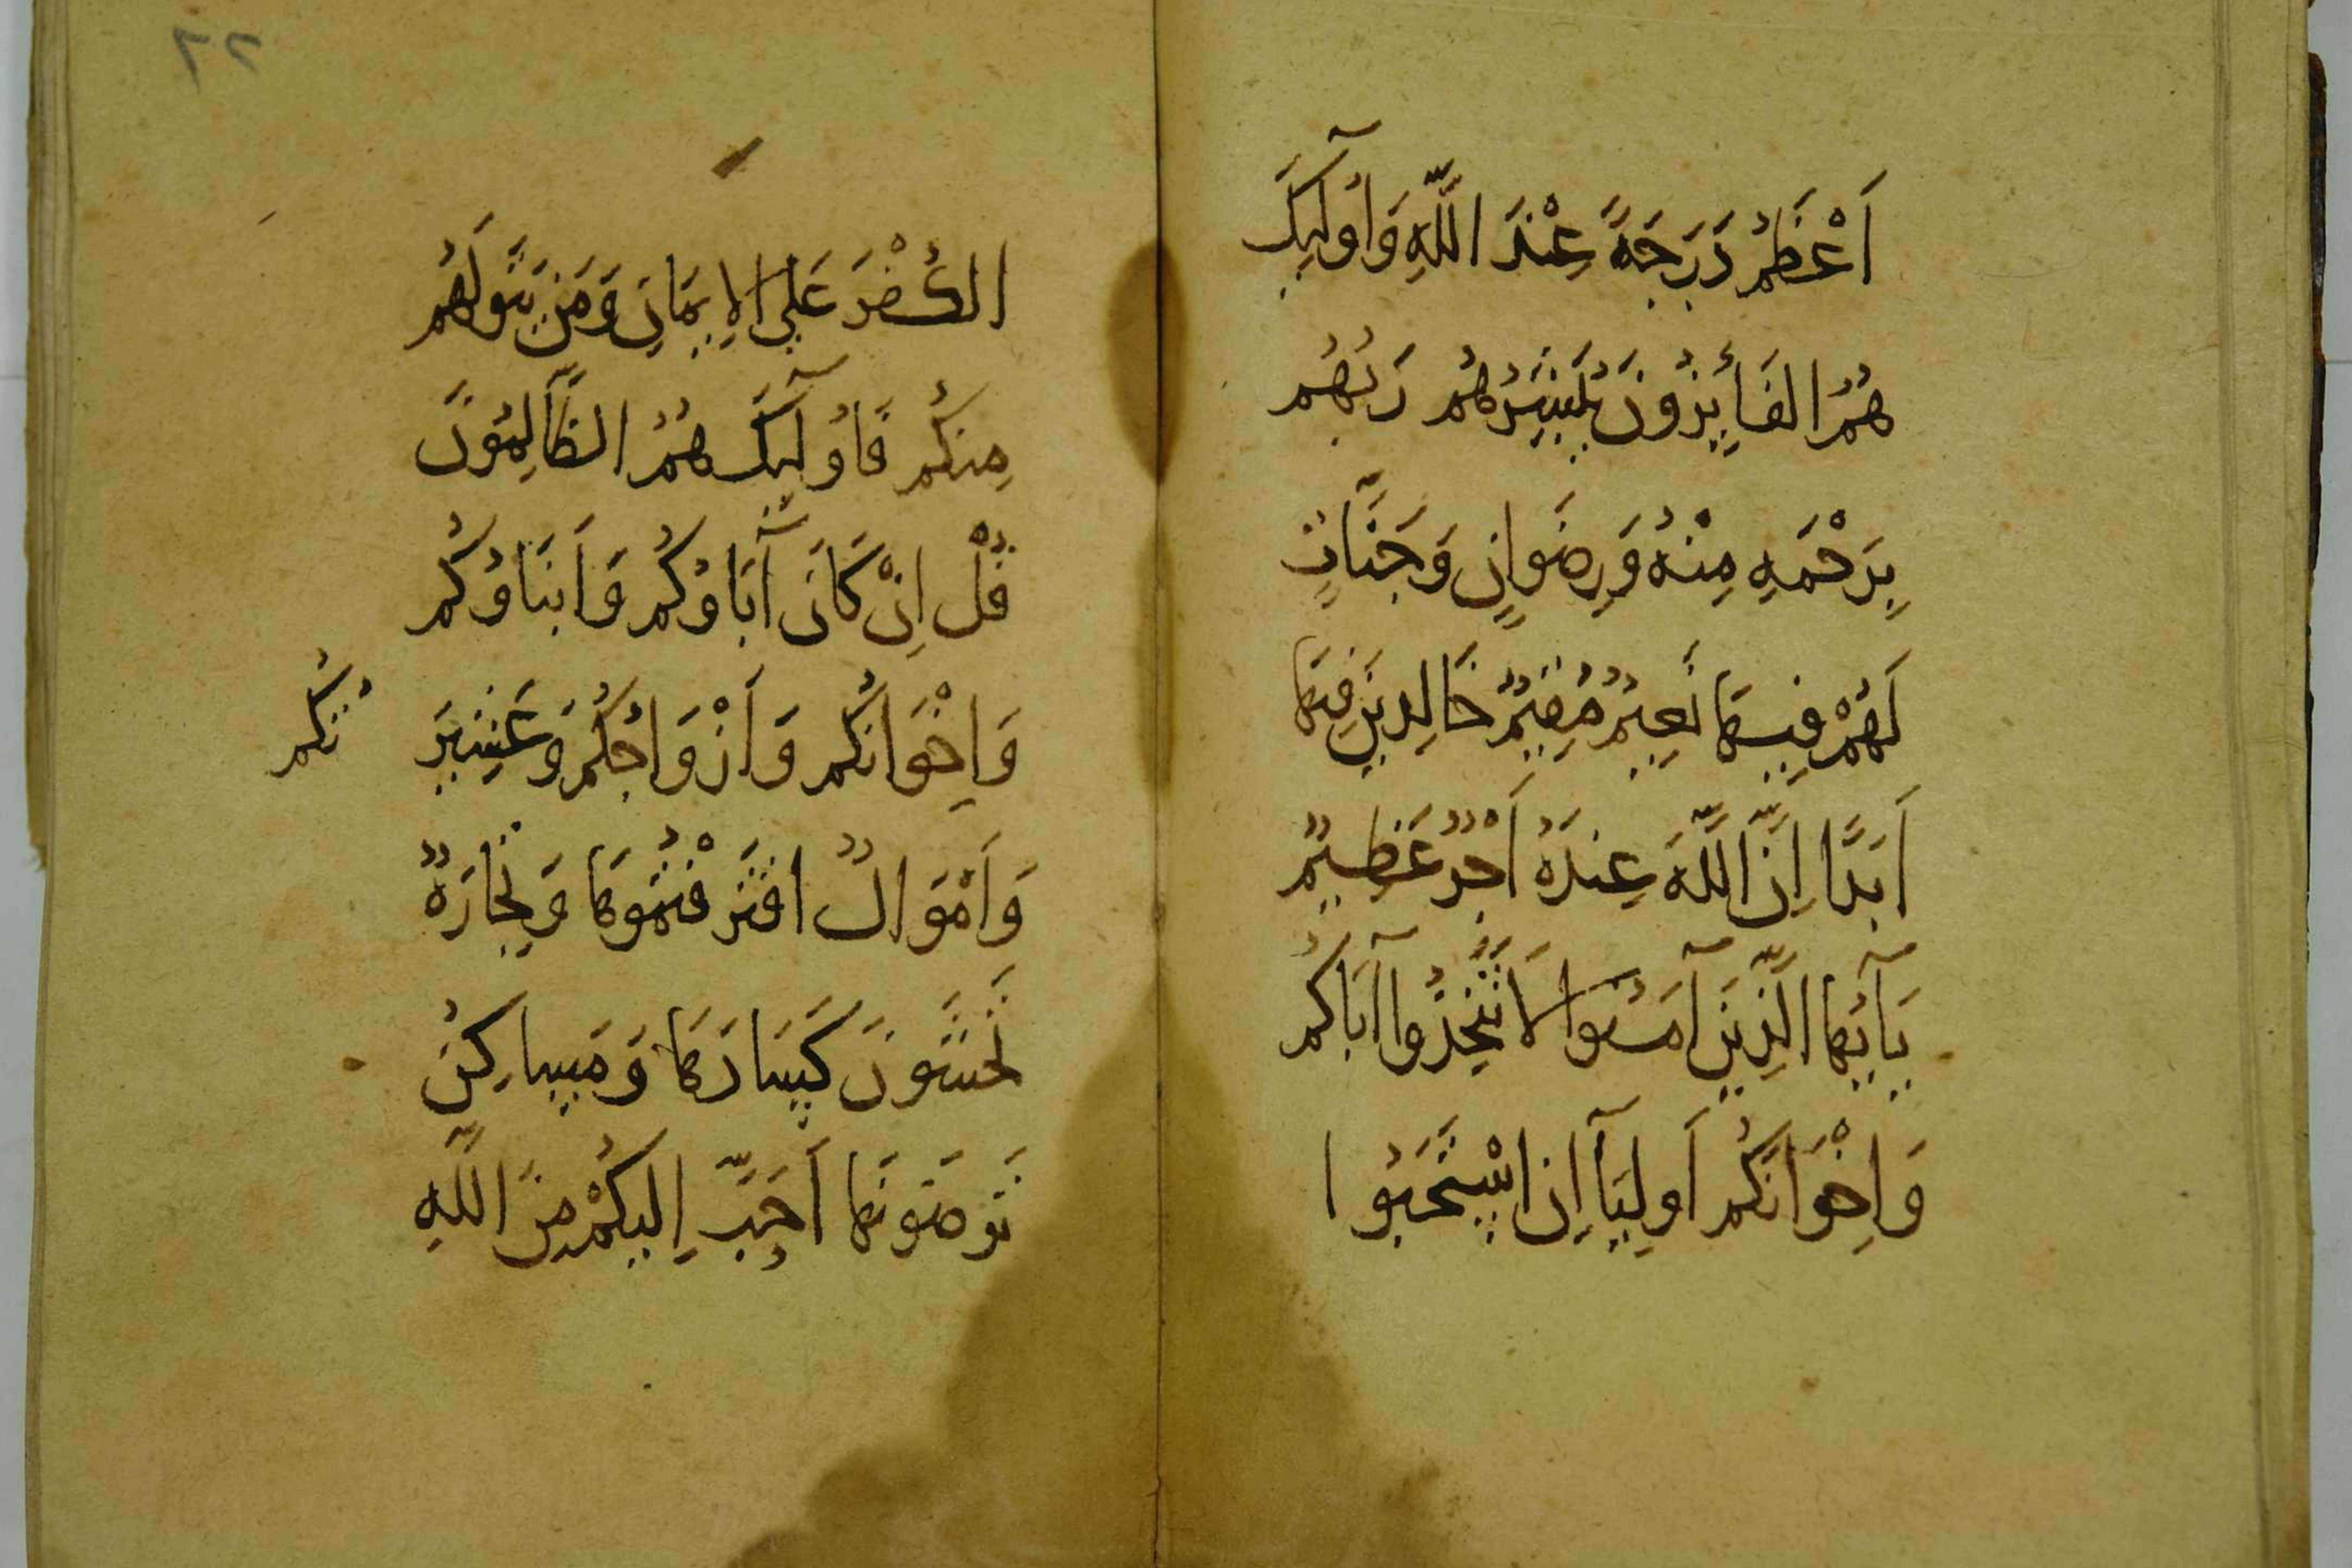 اَعْظَمُ دَرَجَةً عِنْدَ اللَّهِ وَأُولَٓئِكَ
هُمُ الفَائِزُونَ يُبَشِّرُهُم رَبُهُم
بِرَحْمَةٍ مِنْهُ وَرِضَوانٍ وَجَنَّاتٍ
لَهُمْ فِيهَا نَعِيمٌ مُقِيمٌ خَالِدِينَ فِيهَا
اَبَدًا اِنَّ اللَّهَ عِندَهُ اَجْرٌ عَظِيمٌ
يَآ اَيُهَا الَّذِينَ آمَنُوا لَا تَتَّخِذُوا آبَاكُم
وَاِخْوَانَكُم اَولِيَآ اِنِ اسْتَحَبُوا
الكُفْرَ عَلَي الاِيمَانِ وَمَن يَتَوَلَهُم
مِنكُم فَاُولَٓئِكَ هُمُ الظَّالِمُونَ
قُلْ اِنْ كَانَ آبَاؤُكُم وَاَبنَاؤُكُم
وَاِخْوَانُكُم وَاَزْوَاجُكُم وَعَشِيرَ
تُكُم
وَاَمْوَالٌ اقتَرَفْتُمُوهَا وَتِجَارَةٌ
تَخشَونَ كَسَادَهَا وَمَسَاكِنُ
تَرضَونَهَا اَحَبَّ اِلَيكُمْ مِنَ اللَّهِ
٢٢